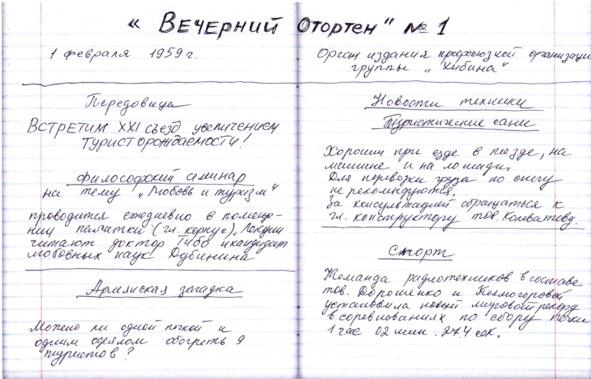 „ Вечерний Отортен" № 1
1 февраля 1959 г.
Передовица
Встретим XXI съезд увеличением
туристорождаемости!
Философский семинар
на тему „Любовь и туризм"
проводится ежедневно в помеще-
нии палатки (гл. корпус). Лекции
читают доктор Тибо и кандидат
любовных наук Дубинина
Армянская загадка
Можно ли одной печкой и
одним одеялом обогреть 9
туристов?
Орган издания профсоюзной организации
группы „Хибина"
Новости техники
Туристические сани
Хороши при езде в поезде, на
машине и на лошади.
Для перевозки груза по снегу
не рекомендуются.
За консультацией обращаться к
гл. конструктору тов. Колеватову.
Спорт
Команда радиотехников в составе
тов. Дорошенко и Колмогоровой
установила новый мировой рекорд
в соревнованиях по сбору печки
1 час 02 мин. 27.4 сек.